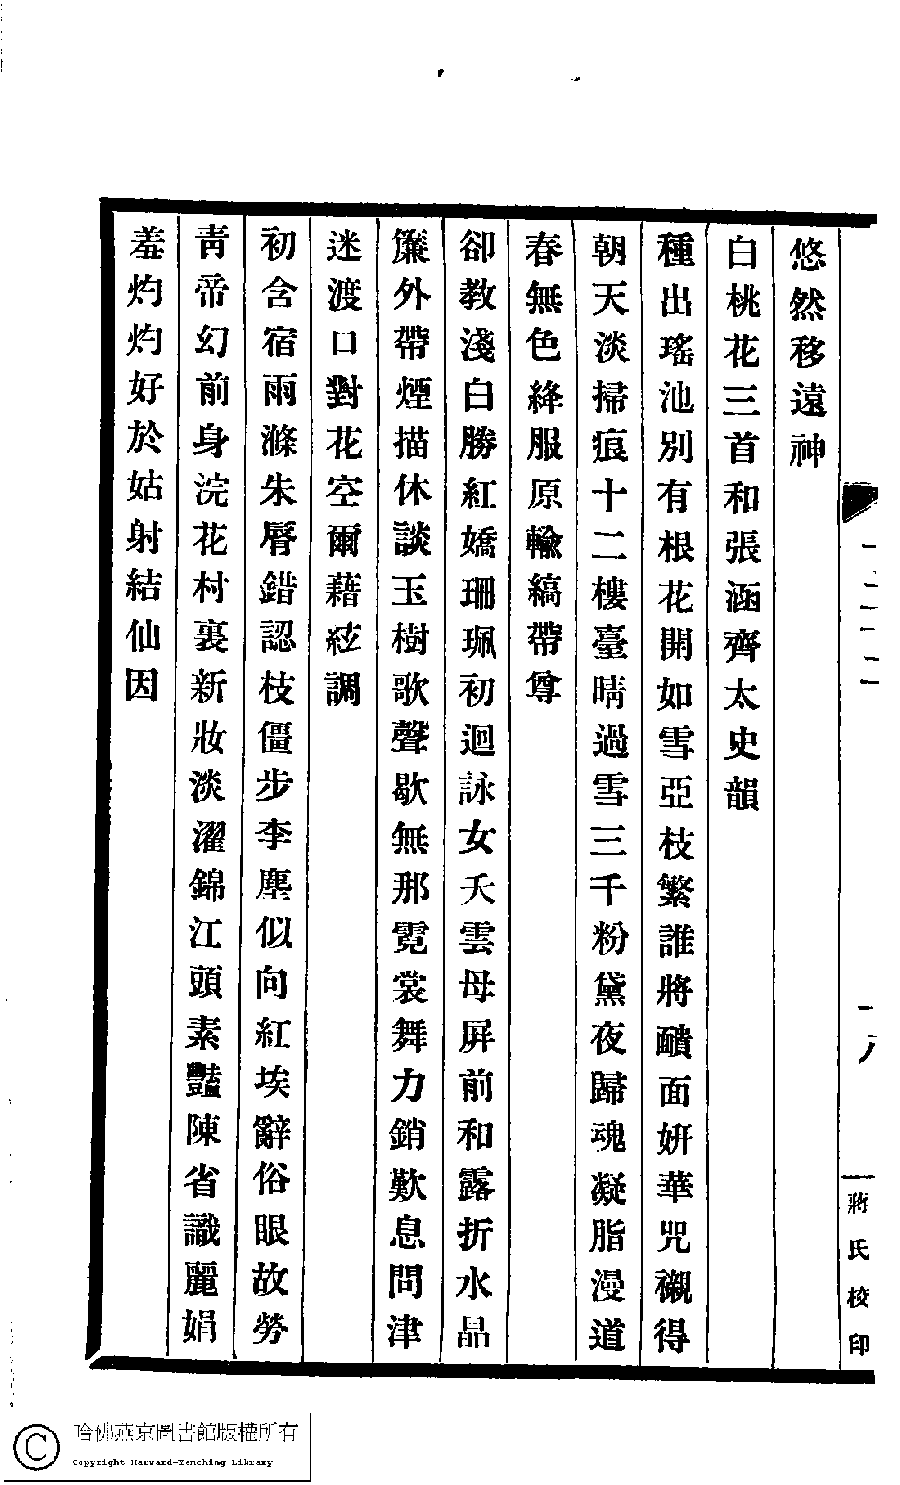 悠然移遠神
白桃花三首和張涵齊太史韻
種出瑤池別有根花開如雪亞枝繁誰將靧面妍華咒襯得
朝天淡掃痕十二樓臺晴過雪三千粉黛夜歸魂凝脂漫道
春無色絳服原輸縞帶尊
卻教淺白勝紅嬌珊珮初迴詠女夭雲母屏前和露折水晶
簾外帶煙描休談玉樹歌聲歇無那霓裳舞力銷歎息問津
迷渡口對花空爾藉絃調
初含宿雨滌朱脣錯認枝僵步李塵似向紅埃辭俗眼故勞
青帝幻前身浣花村裏新妝淡濯錦江頭素豔陳省識麗娟
羞灼灼好於姑射結仙因
蔣氏校印
哈佛燕京圖書館版權所有
Copyright Harvard-Yenching Library